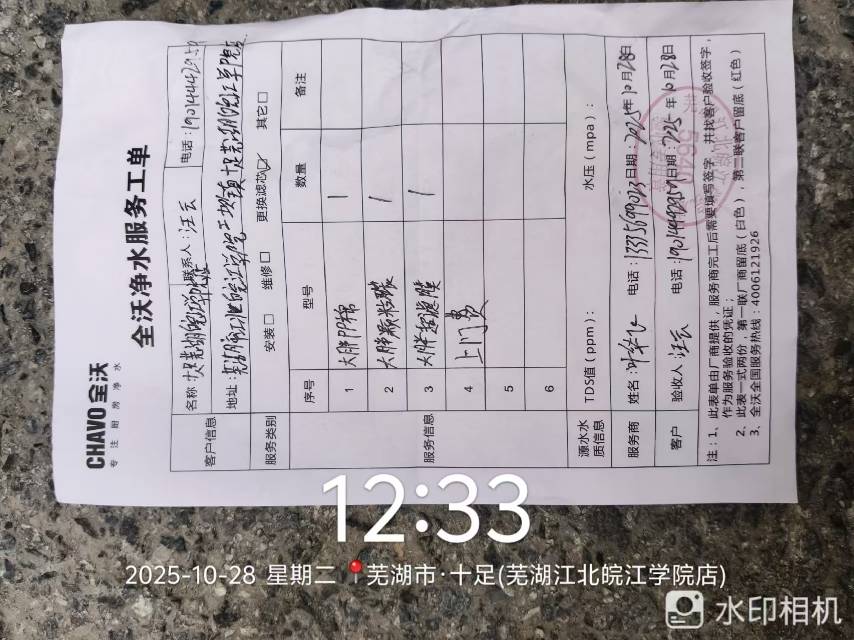 CHAVO全沃
专注厨房净水
全沃净水服务工单
客户信息 名称 联系人：汪云 电话：
地址：
服务类别 安装□ 维修□ 更换滤芯☑ 其它□
服务信息 序号 型号 数量 备注
1 大胖PP棉 1
2 大胖 1
3 大胖超滤膜 1
4 上门费
5
6
源水水质信息 TDS值（ppm）： 水压（mpa）：
服务商 姓名： 电话： 日期：2025年10月28日
客户 验收人 汪云 电话： 日期：2025年10月28日
注：1、此表单由厂商提供，服务商完工后需要填写签字，并找客户验收签字，
作为服务验收的凭证；
2、此表一式两份，第一联厂商留底（白色），第二联客户留底（红色）
3、全沃全国服务热线：4006121926
12:33
2025-10-28 星期二 芜湖市·十足(芜湖江北皖江学院店)
水印相机